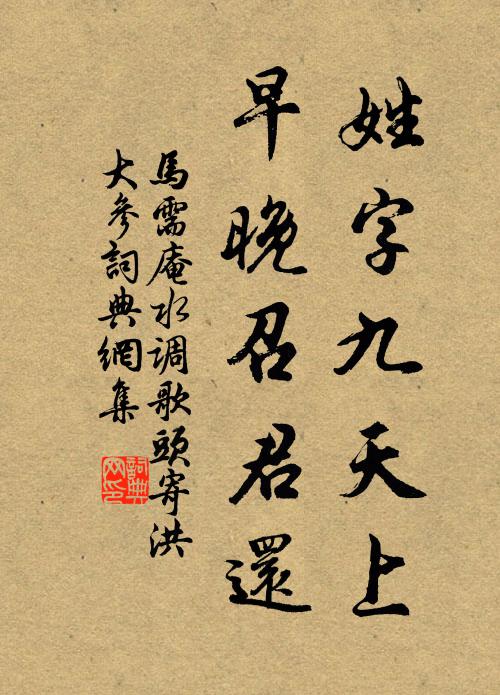 姓字九天上
早晚召君還
馬需庵水調歌頭寄洪
大參詞典網集
詞典網印